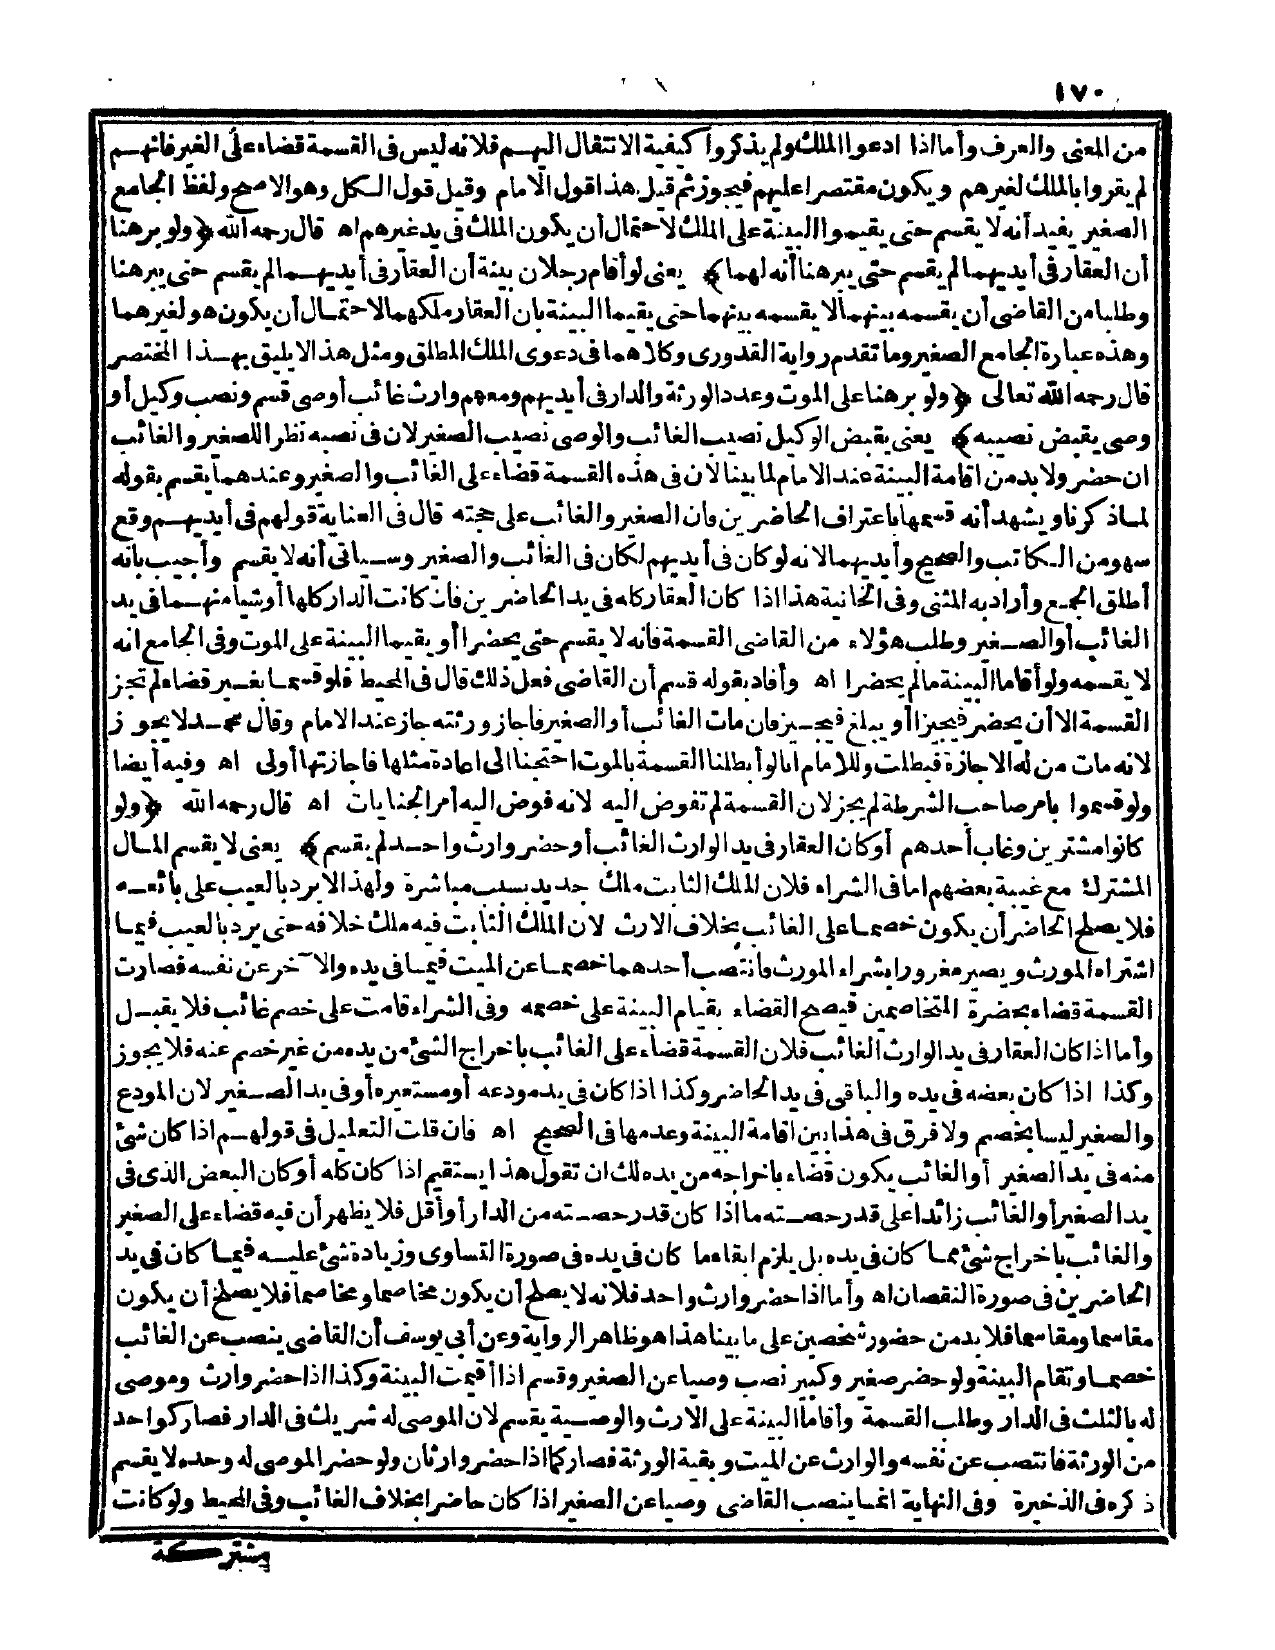 ١٧٠
من المعنى والعرف وأما اذا ادعوا الملك ولم يذكروا كيفية الانتقال اليهم فلانه ليس فى القسمة قضاء على الغير فانهم
لم يقروا بالملك لغيرهم ويكون مقتصرا عليهم فيجوز ثم قيل هذا قول الامام وقيل قول الكل وهو الاصح ولفظ الجامع
الصغير يفيد أنه لا يقسم حتى يقيموا البينة على الملك لاحتمال أن يكون الملك فى يد غيرهم اه قال رحمه الله ﴿ولو برهنا
أن العقار فى أيديهما لم يقسم حتى يبرهنا أنه لهما﴾ يعنى لو أقام رجلان بينة أن العقار فى أيديهما لم يقسم حتى يبرهنا
وطلبا من القاضى أن يقسمه بينهما لا يقسمه بينهما حتى يقيما البينة بان العقار ملكهما لاحتمال أن يكون هو لغيرهما
وهذه عبارة الجامع الصغير وما تقدم رواية القدورى وكلاهما فى دعوى الملك المطلق ومثل هذا لا يليق بهذا المختصر
قال رحمه الله تعالى ﴿ولو برهنا على الموت وعدد الورثة والدار فى أيديهم ومعهم وارث غائب أو صى قسم ونصب وكيل أو
وصى يقبض نصيبه﴾ يعنى يقبض الوكيل نصيب الغائب والوصى نصيب الصغير لان فى نصبه نظرا للصغير والغائب
ان حضر ولا بد من اقامة البينة عند الامام لما بينا لان فى هذه القسمة قضاء على الغائب والصغير وعندهما يقسم بقوله
لما ذكرنا ويشهد أنه قسمها باعتراف الحاضرين فان الصغير والغائب على حجته قال فى العناية قولهم فى أيديهم وقع
سهو من الكاتب والصحيح وأيديهما لانه لو كان فى أيديهم لكان فى الغائب والصغير وسيأتى أنه لا يقسم وأجيب بانه
أطلق الجمع وأراد به المثنى وفى الخانية هذا اذا كان العقار كله فى يد الحاضرين فان كانت الدار كلها أو شيا منهما فى يد
الغائب أو الصغير وطلب هؤلاء من القاضى القسمة فأنه لا يقسم حتى يحضرا أو يقيما البينة على الموت وفى الجامع انه
لا يقسمه ولو أقاما البينة مالم يحضرا اه وأفاد بقوله قسم أن القاضى فعل ذلك قال فى المحيط فلو قسما بغير قضاء لم تجز
القسمة الا أن يحضر فيجيزا أو يبلغ فيجيز فان مات الغائب أو الصغير فاجاز ورثته جاز عند الامام وقال محمد لا يجوز
لانه مات من له الاجازة فبطلت وللامام انا لو أبطلنا القسمة بالموت احتجنا الى اعادة مثلها فاجازتها أولى اه وفيه أيضا
ولو قسموا بامر صاحب الشرطة لم يجز لان القسمة لم تفوض اليه لانه فوض اليه أمر الجنايات اه قال رحمه الله ﴿ولو
كانوا مشترين وغاب أحدهم أو كان العقار فى يد الوارث الغائب أو حضر وارث واحد لم يقسم﴾ يعنى لا يقسم المال
المشترك مع غيبة بعضهم اما فى الشراء فلان الملك الثابت ملك جديد بسبب مباشرة ولهذا لا يرد بالعيب على بائعه
فلا يصلح الحاضر أن يكون خصما على الغائب بخلاف الارث لان الملك الثابت فيه ملك خلافه حتى يرد بالعيب فيما
اشتراه المورث ويصير مغرورا بشراء المورث فانتصب أحدهما خصما عن الميت فيما فى يده والآخر عن نفسه فصارت
القسمة قضاء بحضرة المتخاصمين فيصح القضاء بقيام البينة على خصمه وفى الشراء قامت على خصم غائب فلا يقبل
وأما اذا كان العقار فى يد الوارث الغائب فلان القسمة قضاء على الغائب باخراج الشئ من يده من غير خصم عنه فلا يجوز
وكذا اذا كان بعضه فى يده والباقى فى يد الحاضر وكذا اذا كان فى يد مودعه أو مستعيره أو فى يد الصغير لان المودع
والصغير ليسا بخصم ولا فرق فى هذا بين اقامة البينة وعدمها فى الصحيح اه فان قلت التعليل فى قولهم اذا كان شئ
منه فى يد الصغير أو الغائب يكون قضاء باخراجه من يده لك ان تقول هذا يستقيم اذا كان كله أو كان البعض الذى فى
يد الصغير أو الغائب زائدا على قدر حصته ما اذا كان قدر حصته من الدار أو أقل فلا يظهر أن فيه قضاء على الصغير
والغائب باخراج شئ مما كان فى يده بل يلزم ابقاء ما كان فى يده فى صورة التساوى وزيادة شئ عليه فيما كان فى يد
الحاضرين فى صورة النقصان اه وأما اذا حضر وارث واحد فلانه لا يصلح أن يكون مخاصما ومخاصما فلا يصلح أن يكون
مقاسما ومقاسما فلا بد من حضور شخصين على ما بينا هذا هو ظاهر الرواية وعن أبى يوسف أن القاضى ينصب عن الغائب
خصما وتقام البينة ولو حضر صغير وكبير نصب وصيا عن الصغير وقسم اذا أقيمت البينة وكذا اذا حضر وارث وموصى
له بالثلث فى الدار وطلب القسمة وأقاما البينة على الارث والوصية يقسم لان الموصى له شريك فى الدار فصار كواحد
من الورثة فانتصب عن نفسه والوارث عن الميت وبقية الورثة فصار كما اذا حضر وارثان ولو حضر الموصى له وحده لا يقسم
ذكره فى الذخيرة وفى النهاية انما ينصب القاضى وصيا عن الصغير اذا كان حاضرا بخلاف الغائب وفى المحيط ولو كانت
مشتركة